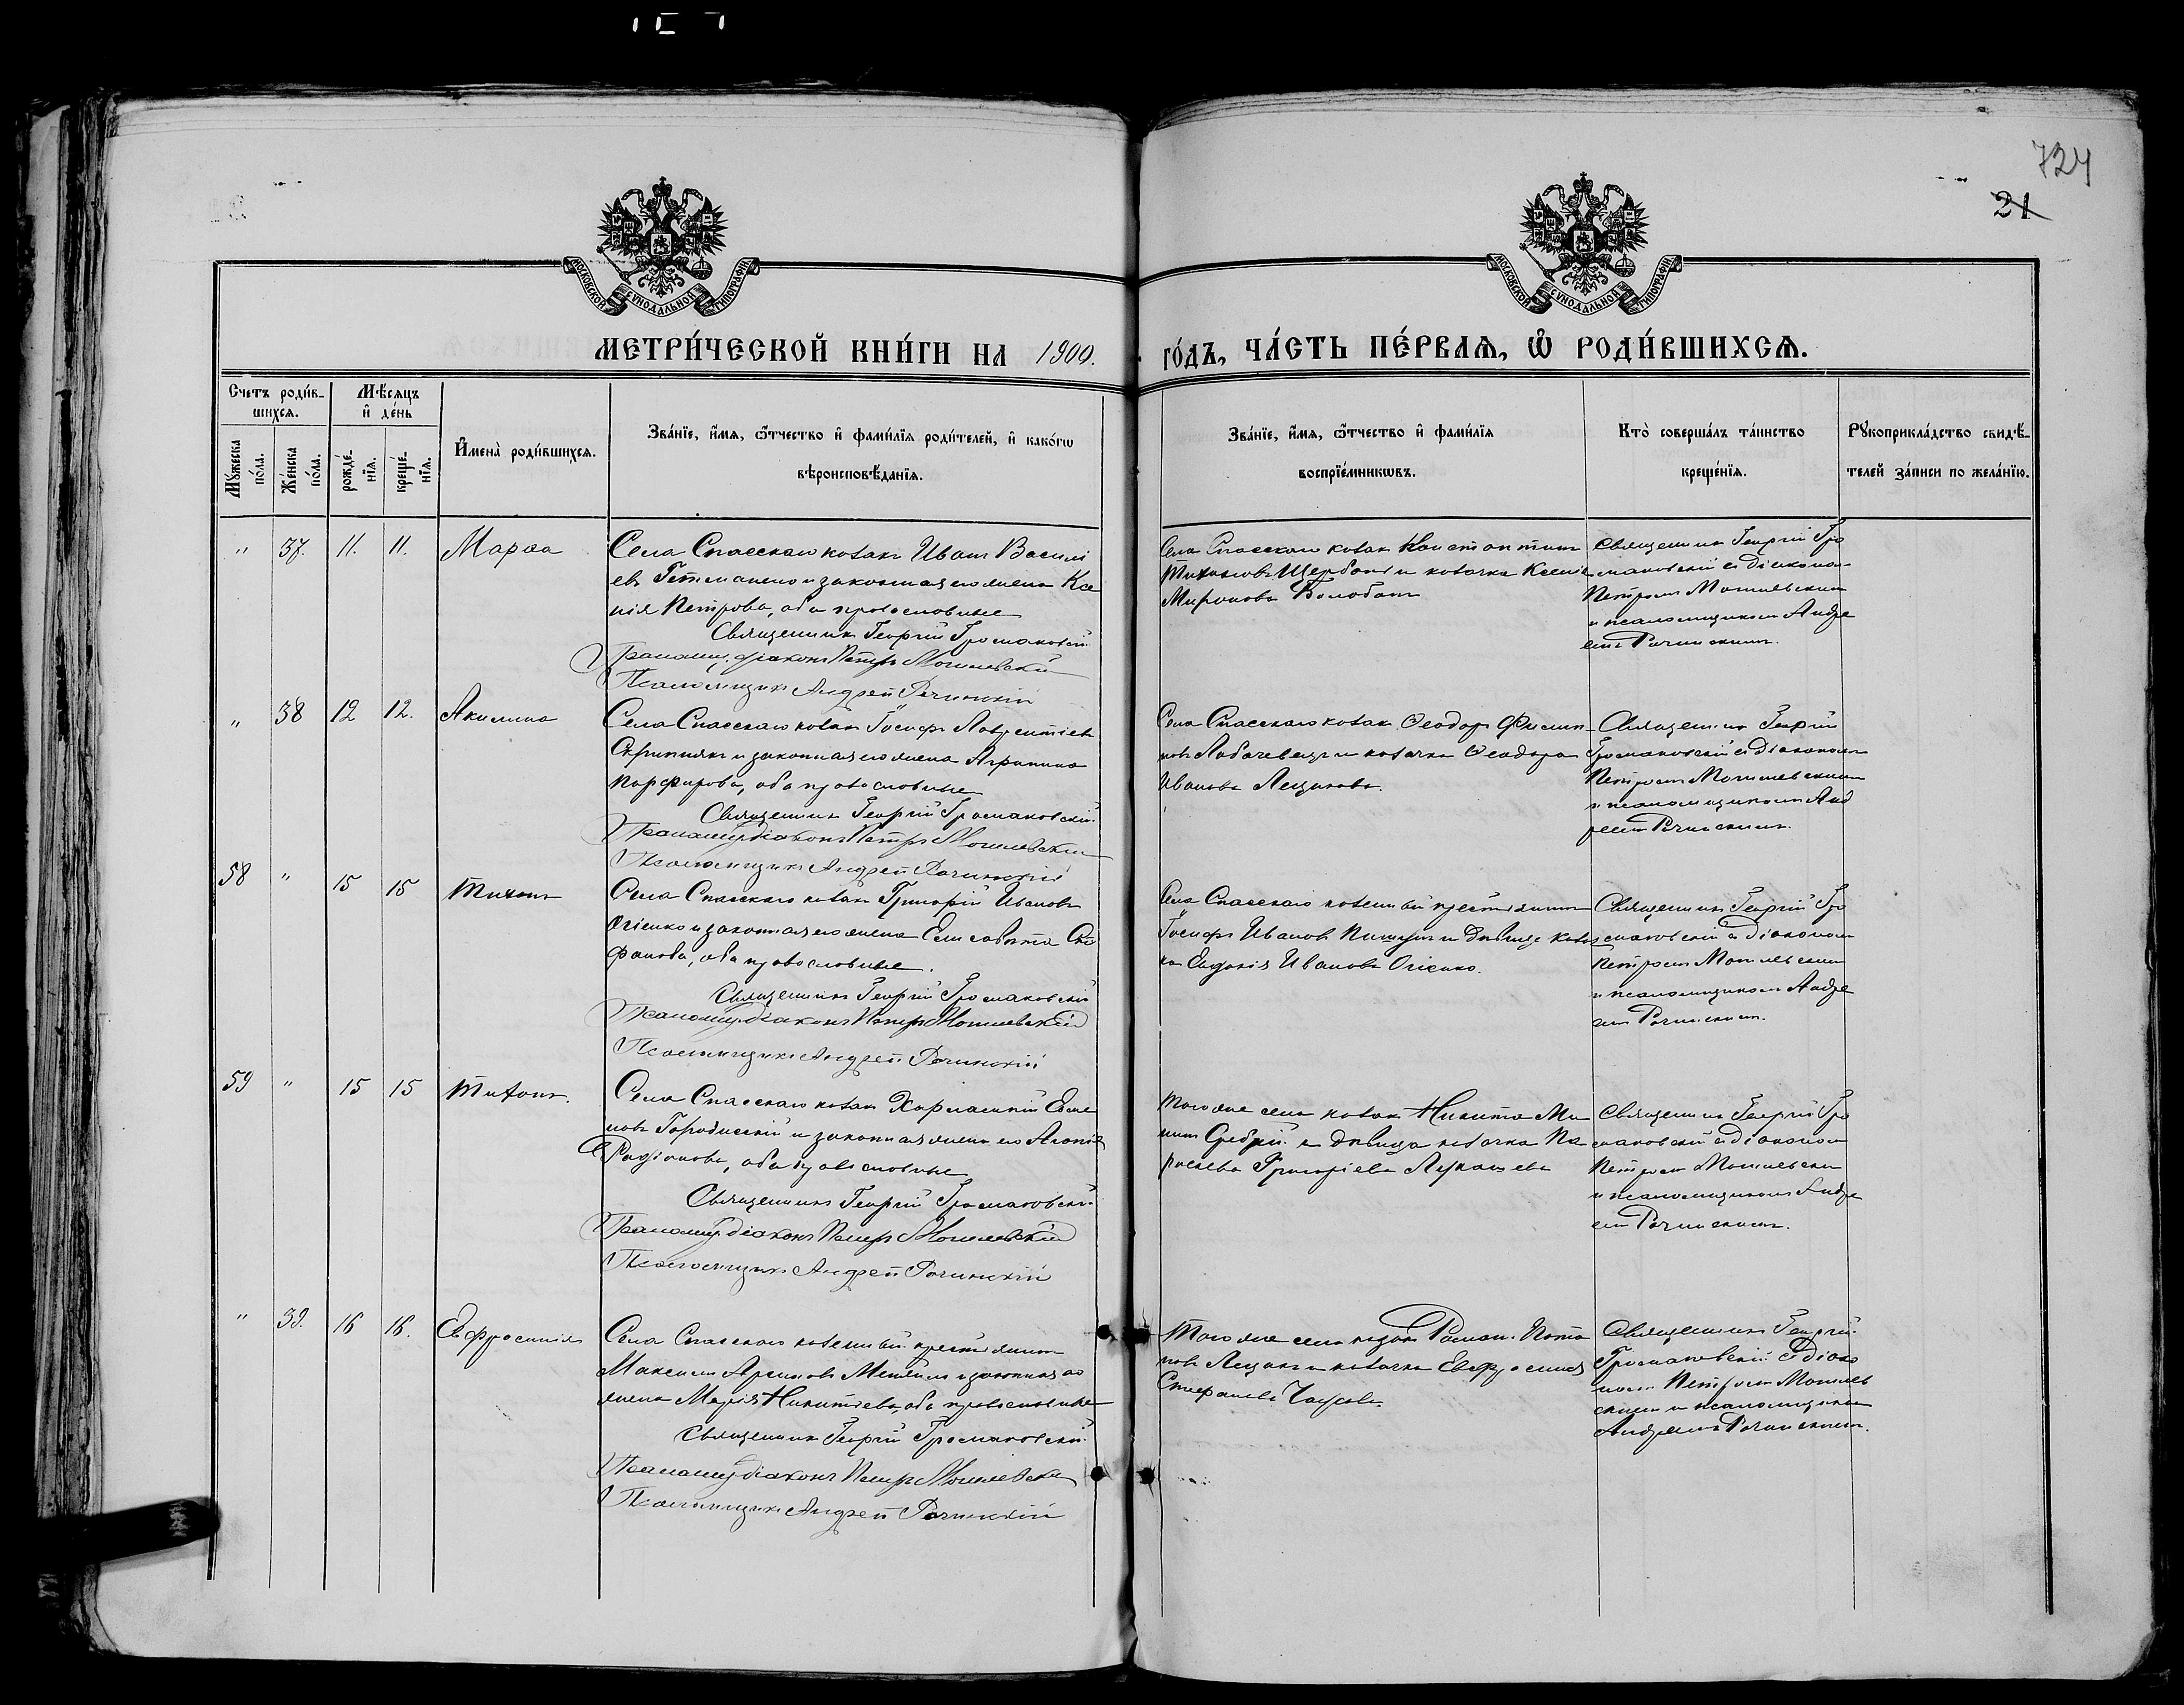 724
21
МОСКОВСКОЙ СѴНОДАЛЬНОЙ ТИПОГРАФІИ
МОСКОВСКОЙ СѴНОДАЛЬНОЙ ТИПОГРАФІИ
МЕТРИ́ЧЕСКОЙ КНИ́ГИ НА 1900.
ГО́ДЪ, ЧА́СТЬ ПЕ́РВАѦ, Ѡ РОДИ́ВШИХСѦ.
Счетъ роди́в-
шихсѧ.
Мѣсѧцъ
и де́нь
Мꙋжеска
по́ла.
Же́нска
по́ла.
рожде́-
нїѧ.
креще́-
нїѧ.
Имена̀ роди́вшихсѧ.
Зва́нїе, и́мѧ, ѻтчество и фами́лїѧ роди́телей, и како́гѡ
вѣроисповѣданїѧ.
Зва́нїе, и́мѧ, ѻтчество и фами́лїѧ
воспрїе́мникѡвъ.
Кто̀ соверша́лъ та́инство
креще́нїѧ.
Рꙋкоприкла́дство свидѣ-
телей за́писи по жела́нїю.
" 37. 11. 11. Марѳа
Села Спасскаго козакъ Иванъ Василі
евъ Гетманенко и законная его жена Ксе
нія Петрова, оба православные
Священникъ Георгій Громаковскій
діаконъ Петръ Могилевскій
Псаломщикъ Андрей Рачинскій
Села Спасскаго козакъ Константинъ
Тихоновъ Щербакъ и козачка Ксенія
Миронова
Священникъ Георгій Гро
маковскій съ діакономъ
Петромъ Могилевскимъ
и псаломщикомъ Андре
емъ Рачинскимъ.
" 38 12 12. Акилина
Села Спасскаго козакъ Іосифъ Лаврентіевъ
Скрипникъ и законная его жена Агрипина
Порфирова, оба православные
Священникъ Георгій Громаковскій
діаконъ Петръ Могилевскій
Псаломщикъ Андрей Рачинскій
Села Спасскаго козакъ Ѳеодоръ Филип-
повъ и козачка Ѳеодора
Иванова Лещикова.
Священникъ Георгій
Громаковскій съ діакономъ
Петромъ Могилевскимъ
и псаломщикомъ Анд
реемъ Рачинскимъ.
58 " 15 15 Тихонъ
Села Спасскаго козакъ Григорій Ивановъ
Огіенко и законная его жена Елисавета Сте
фанова, оба православные.
Священникъ Георгій Громаковскій
діаконъ Петръ Могилевскій
Псаломщикъ Андрей Рачинскій
Села Спасскаго казенный крестьянинъ
Іосифъ Ивановъ и дѣвица козач
ка Евдокія Иванова Огіенко.
Священникъ Георгій Гро
маковскій съ діакономъ
Петромъ Могилевскимъ
и псаломщикомъ Андре
емъ Рачинскимъ.
59 " 15 15 Тихонъ.
Села Спасскаго козакъ Харлампій
Городисскій и законная жена его Агапія
Родіонова, оба православные
Священникъ Георгій Громаковскій
діаконъ Петръ Могилевскій
Псаломщикъ Андрей Рачинскій
Того же села козакъ Никита Ми
нинъ и дѣвица козачка Па
раскева Григоріева Лукашева
Священникъ Георгій Гро
маковскій съ діакономъ
Петромъ Могилевскимъ
и псаломщикомъ Андре
емъ Рачинскимъ.
" 39. 16 16. Евфросинія
Села Спасскаго казенный крестьянинъ
Максимъ и законная его
жена Марія Никитіева, оба православные
Священникъ Георгій Громаковскій
діаконъ Петръ Могилевскій
Псаломщикъ Андрей Рачинскій
Того же села козакъ Романъ Пота
повъ Лещикъ и козачка Евфросинія
Стефанова
Священникъ Георгій
Громаковскій съ діако
номъ Петромъ Могилев
скимъ и псаломщикомъ
Андреемъ Рачинскимъ.